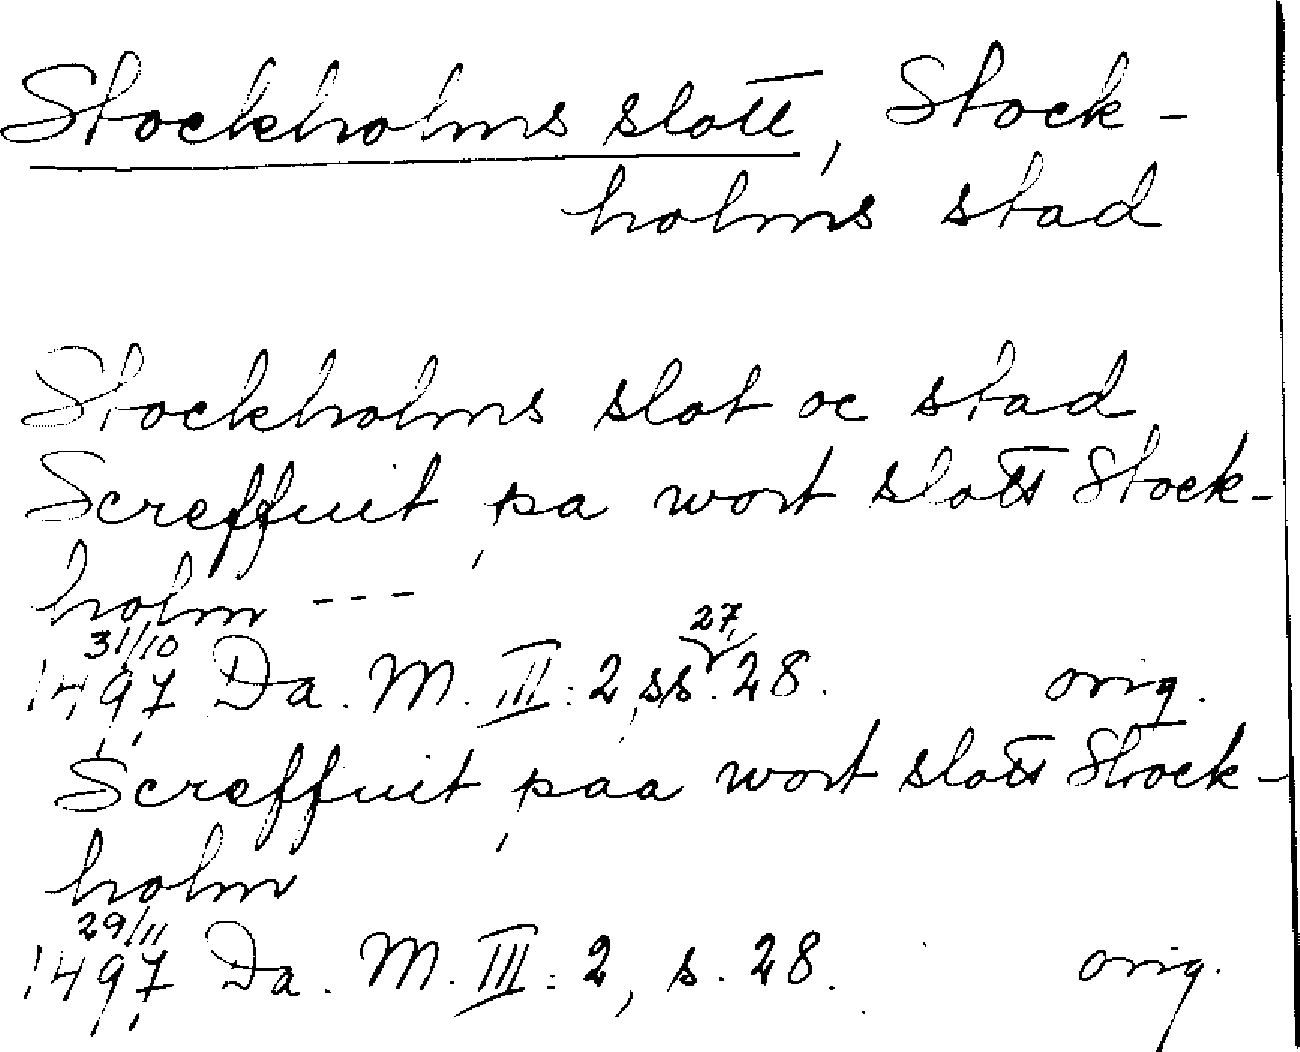 Stockholms slott, Stock-
holms stad
Stockholms slot oc stad
Screffuit pa wort slott Stock-
holm ---
31/10 27,
1497 Da. M. III: 2, ss. 28. orig.
Screffuit paa wort slott Stock-
holm
29/11
1497 Da. M. III: 2, s. 28. orig.